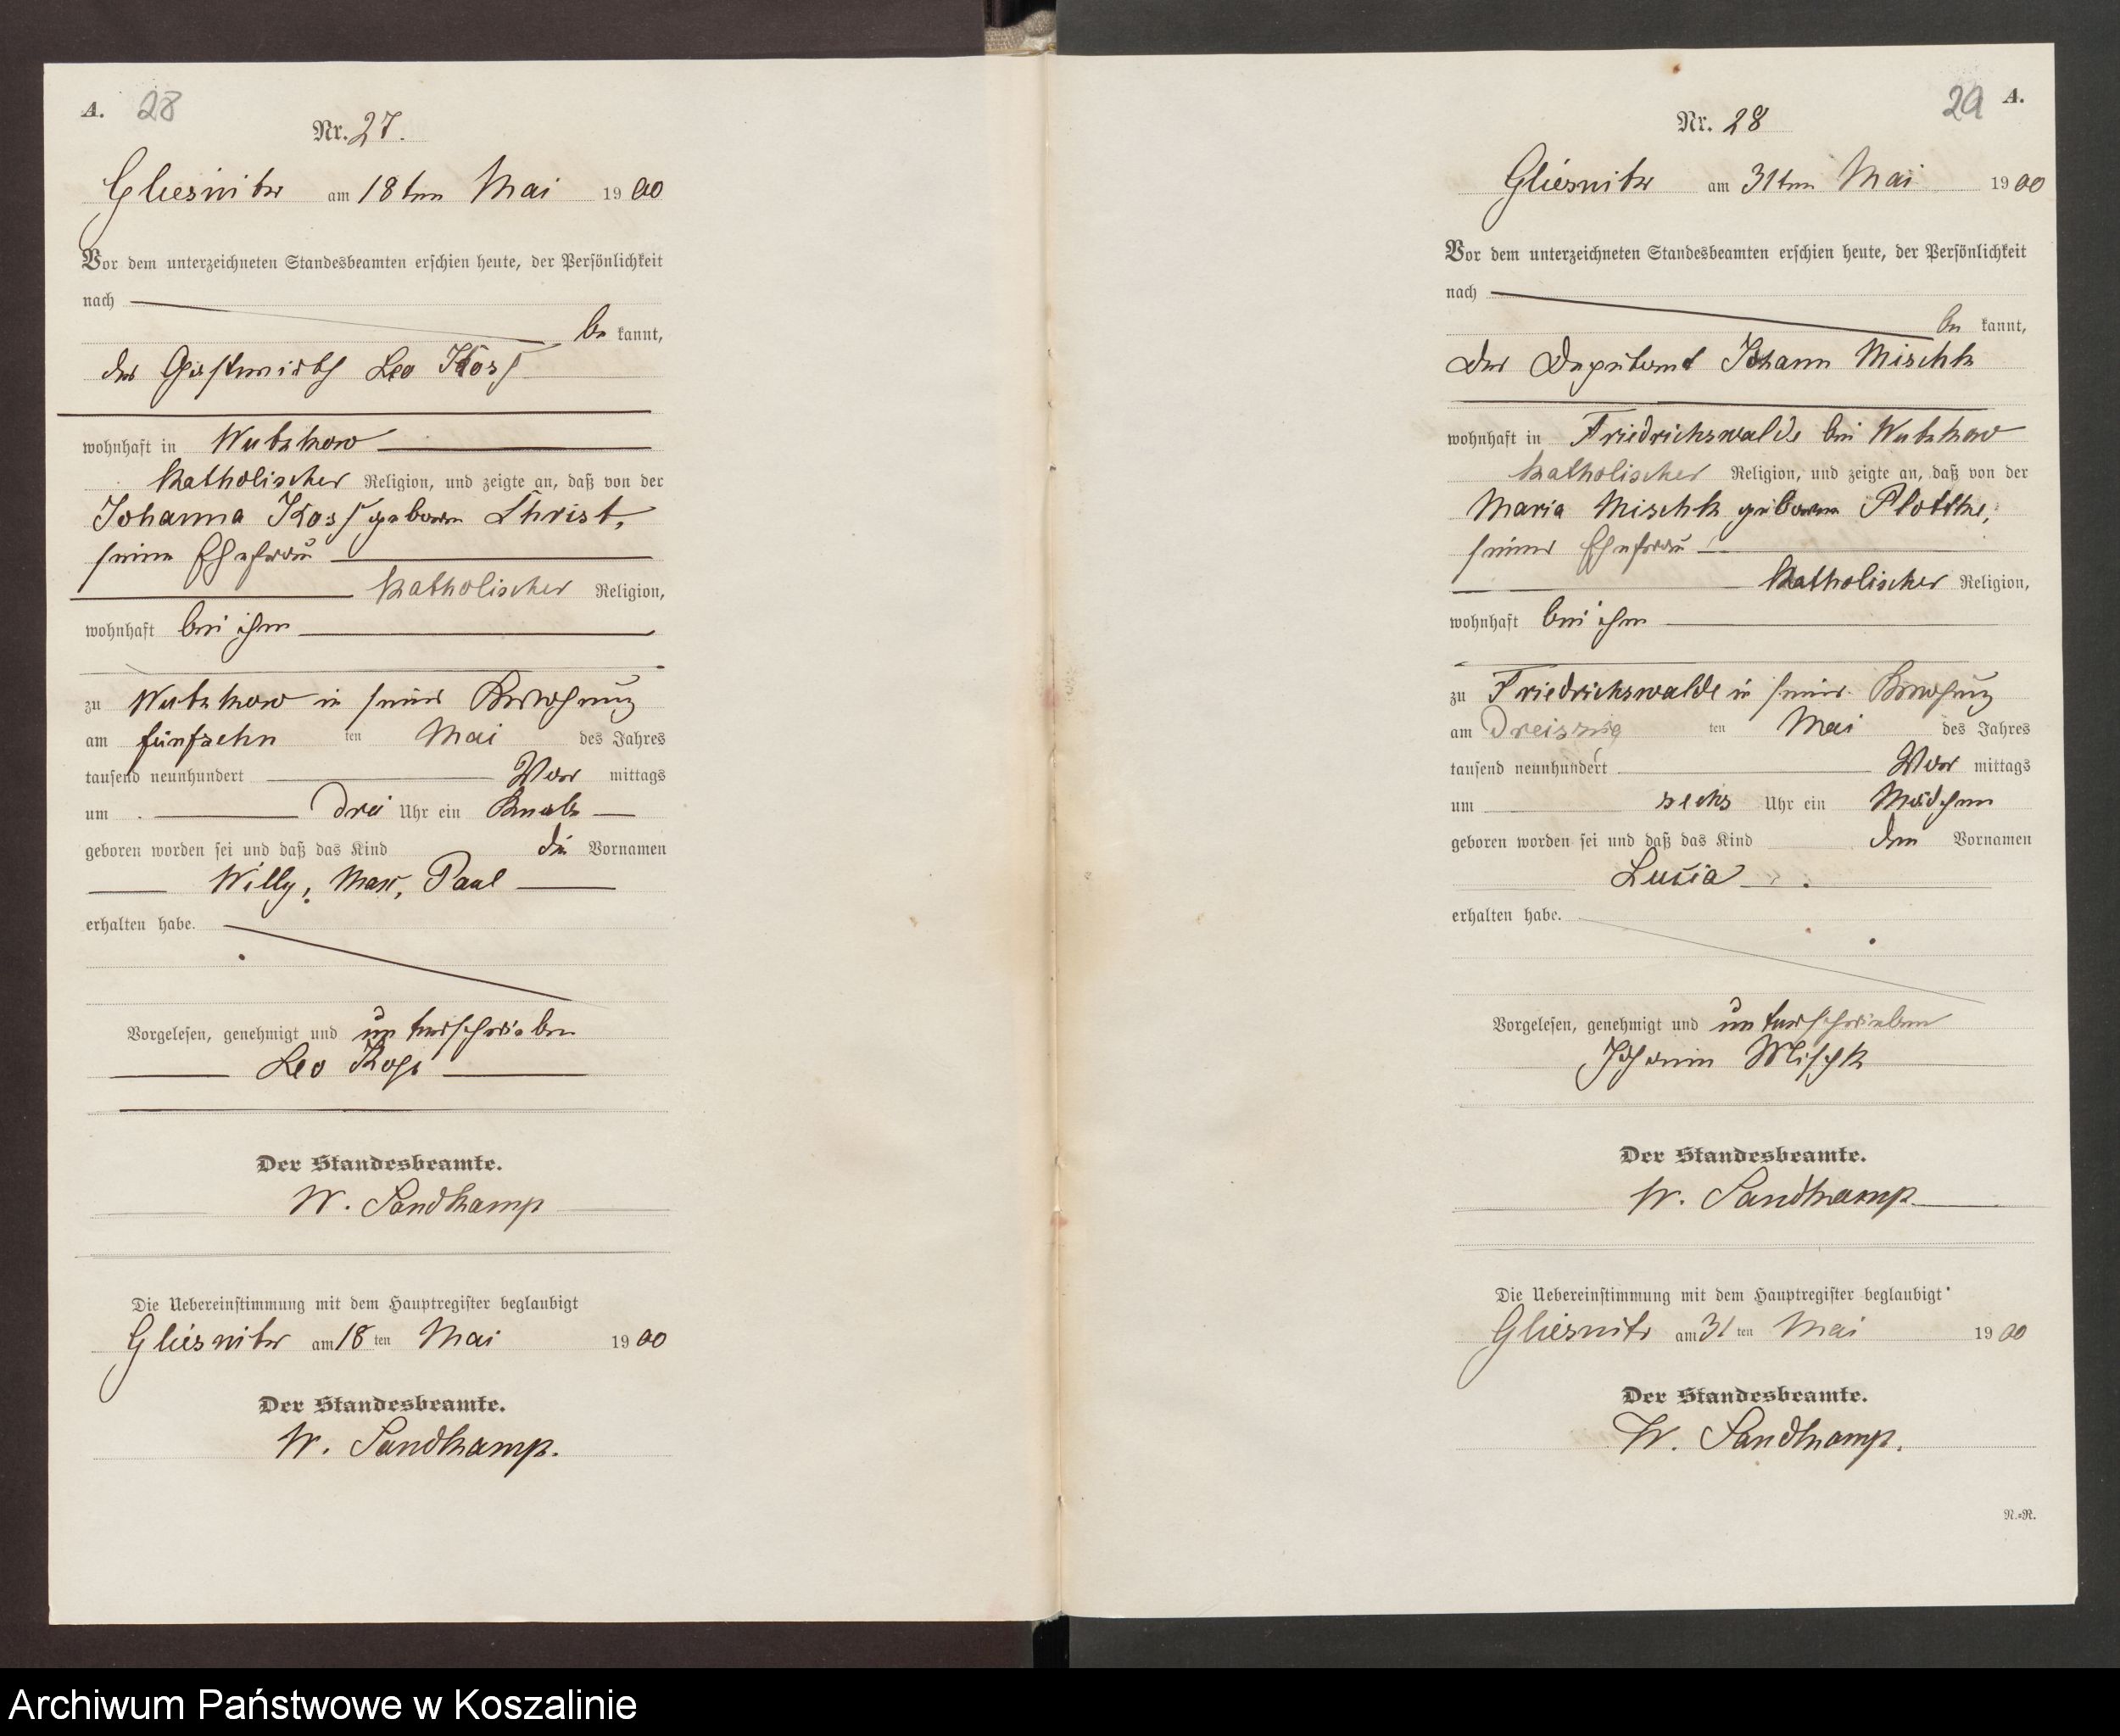 A. 28
Nr. 27.
Gliesnitz am 18ten Mai 1900
Vor dem unterzeichneten Standesbeamten erschien heute, der Persönlichkeit
nach
be kannt,
der Gastwirth Leo Koss
wohnhaft in Wutzkow
katholischer Religion, und zeigte an, daß von der
Johanna Koss geboren Christ,
seine Ehefrau
katholischer Religion,
wohnhaft bei ihm
zu Wutzkow in seiner Bewohnung
am fünfzehn ten Mai des Jahres
tausend neunhundert Vor mittags
um drei Uhr ein Knabe
geboren worden sei und daß das Kind die Vornamen
Willy, Max, Paul
erhalten habe.
Vorgelesen, genehmigt und unterschrieben
Leo Koss
Der Standesbeamte.
W. Sandkamp
Die Uebereinstimmung mit dem Hauptregister beglaubigt
Gliesnitz am 18 ten Mai 1900
Der Standesbeamte.
W. Sandkamp.
29 A.
Nr. 28
Gliesnitz am 31ten Mai 1900
Vor dem unterzeichneten Standesbeamten erschien heute, der Persönlichkeit
nach
be kannt,
der Deputant Johann Mischk
wohnhaft in Friedrichswalde bei Wutzkow
katholischer Religion, und zeigte an, daß von der
Maria Mischk geboren Plottke,
seiner Ehefrau
katholischer Religion,
wohnhaft bei ihm
zu Friedrichswalde in seiner Bewohnung
am Dreiszig ten Mai des Jahres
tausend neunhundert Vor mittags
um sechs Uhr ein Mädchen
geboren worden sei und daß das Kind den Vornamen
Lucia
erhalten habe.
Vorgelesen, genehmigt und unterschrieben
Johann Mischk
Der Standesbeamte.
W. Sandkamp
Die Uebereinstimmung mit dem Hauptregister beglaubigt
Gliesnitz am 31 ten Mai 1900
Der Standesbeamte.
W. Sandkamp.
N.=N.
Archiwum Państwowe w Koszalinie